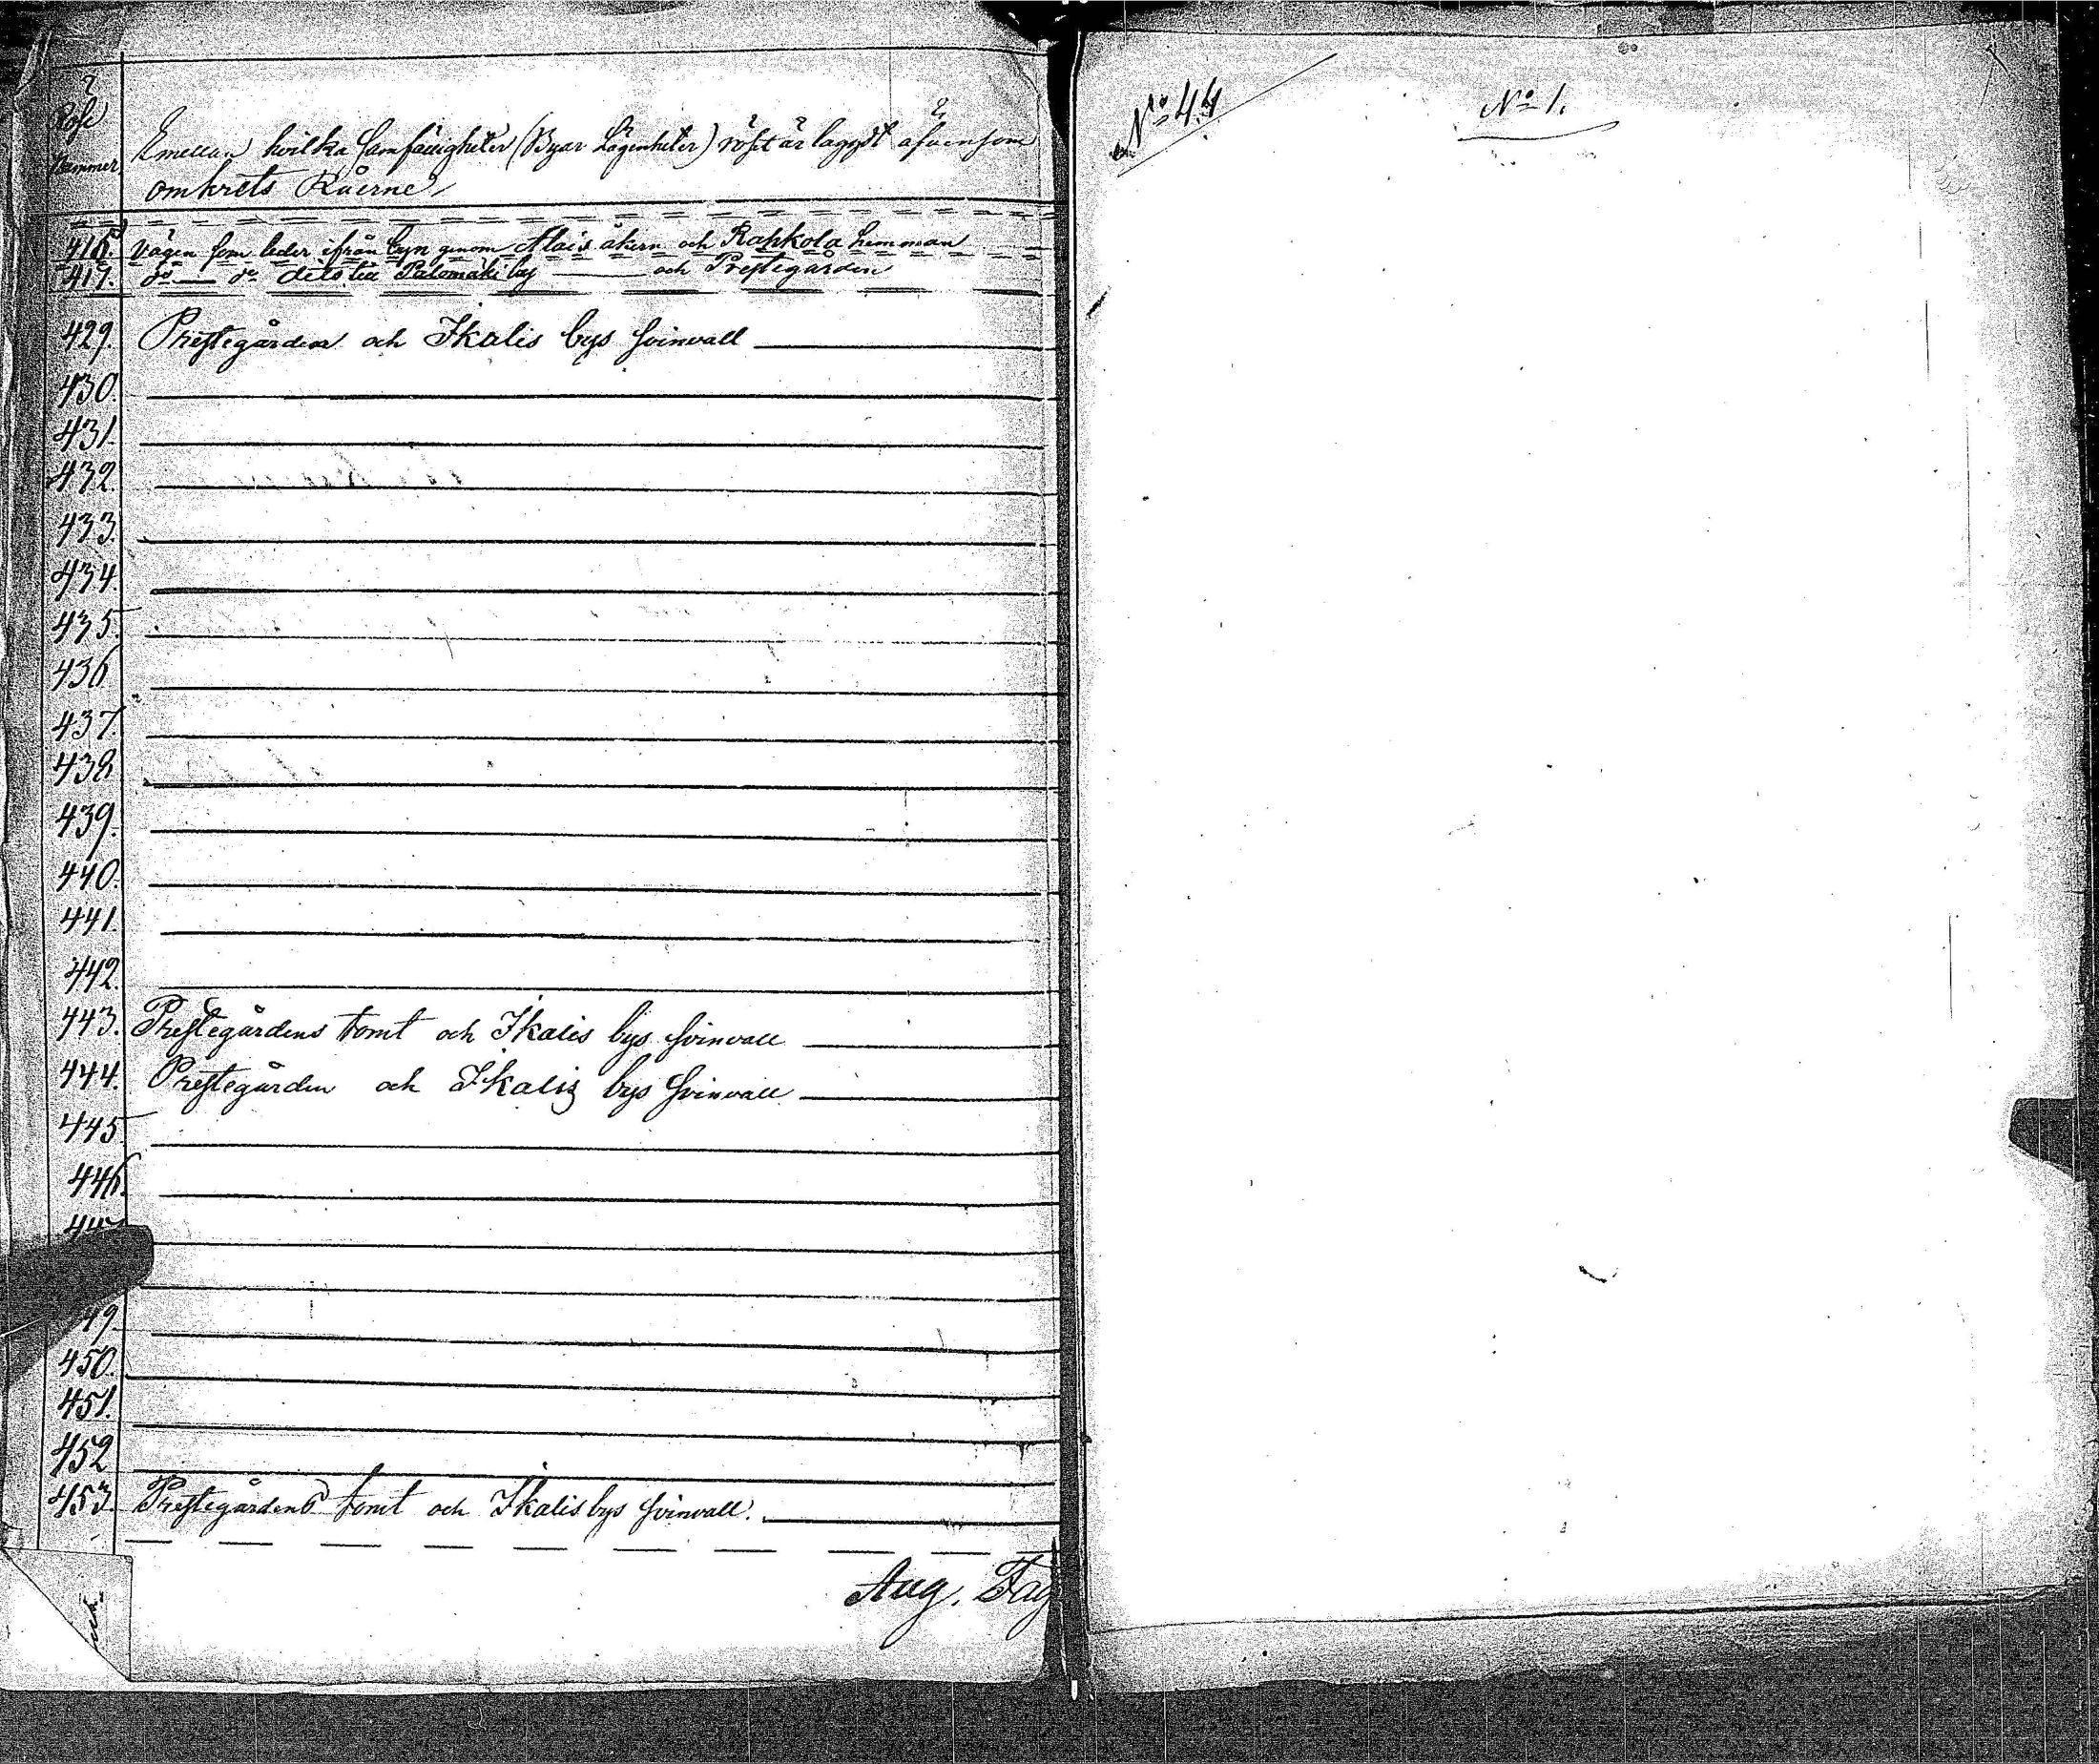 Röse Nummer
Emellan hvilka Samfälligheter (Byar Lägenheter) röset är laggdt äfvensom
omkrets Råerne
416. Vägen som leder ifrån byn genom Alais åkern och Rahkola hemman
417. do do dito till Palomäki by och Prestegården
429. Prestegården och Ikalis bys svinvall
430.
431.
432.
433.
434.
435.
436
437.
438
439.
440.
441.
442.
443. Prestegårdens tomt och Ikalis bys svinvall
444. Prestegården och Ikalis bys svinvall
445
446.
447
49
450.
451.
452
453. Prestegårdens tomt och Ikalis bys svinvall.
Aug. Fag
No 44
No 1.